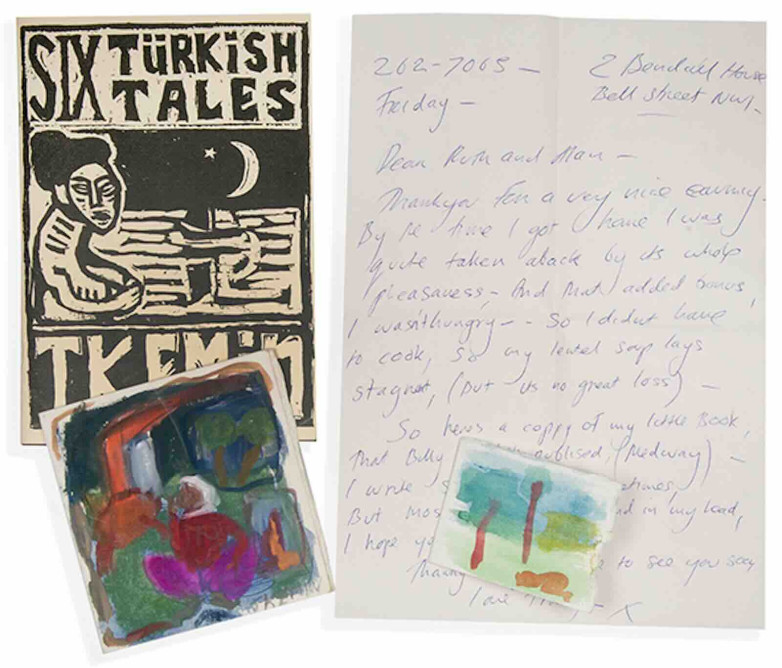 SIX TÜRKiSH
TALES
TK EMiN
262-7065 —
2 Bendall House
Bell street NW1.
Friday —
Dear Ruth and Alan —
Thankyou for a very nice evening.
By the time I got home I was
quite taken aback by its whole
pleasaness, And that added bonus,
I wasn't hungry — - So I didnt have
to cook, So my lentel soup lays
stagnet, (but its no great loss) —
So heres a copy of my little Book,
That Billy publised, (Medway) —
I write
But mos in my head,
I hope yo to see you soon
Love X